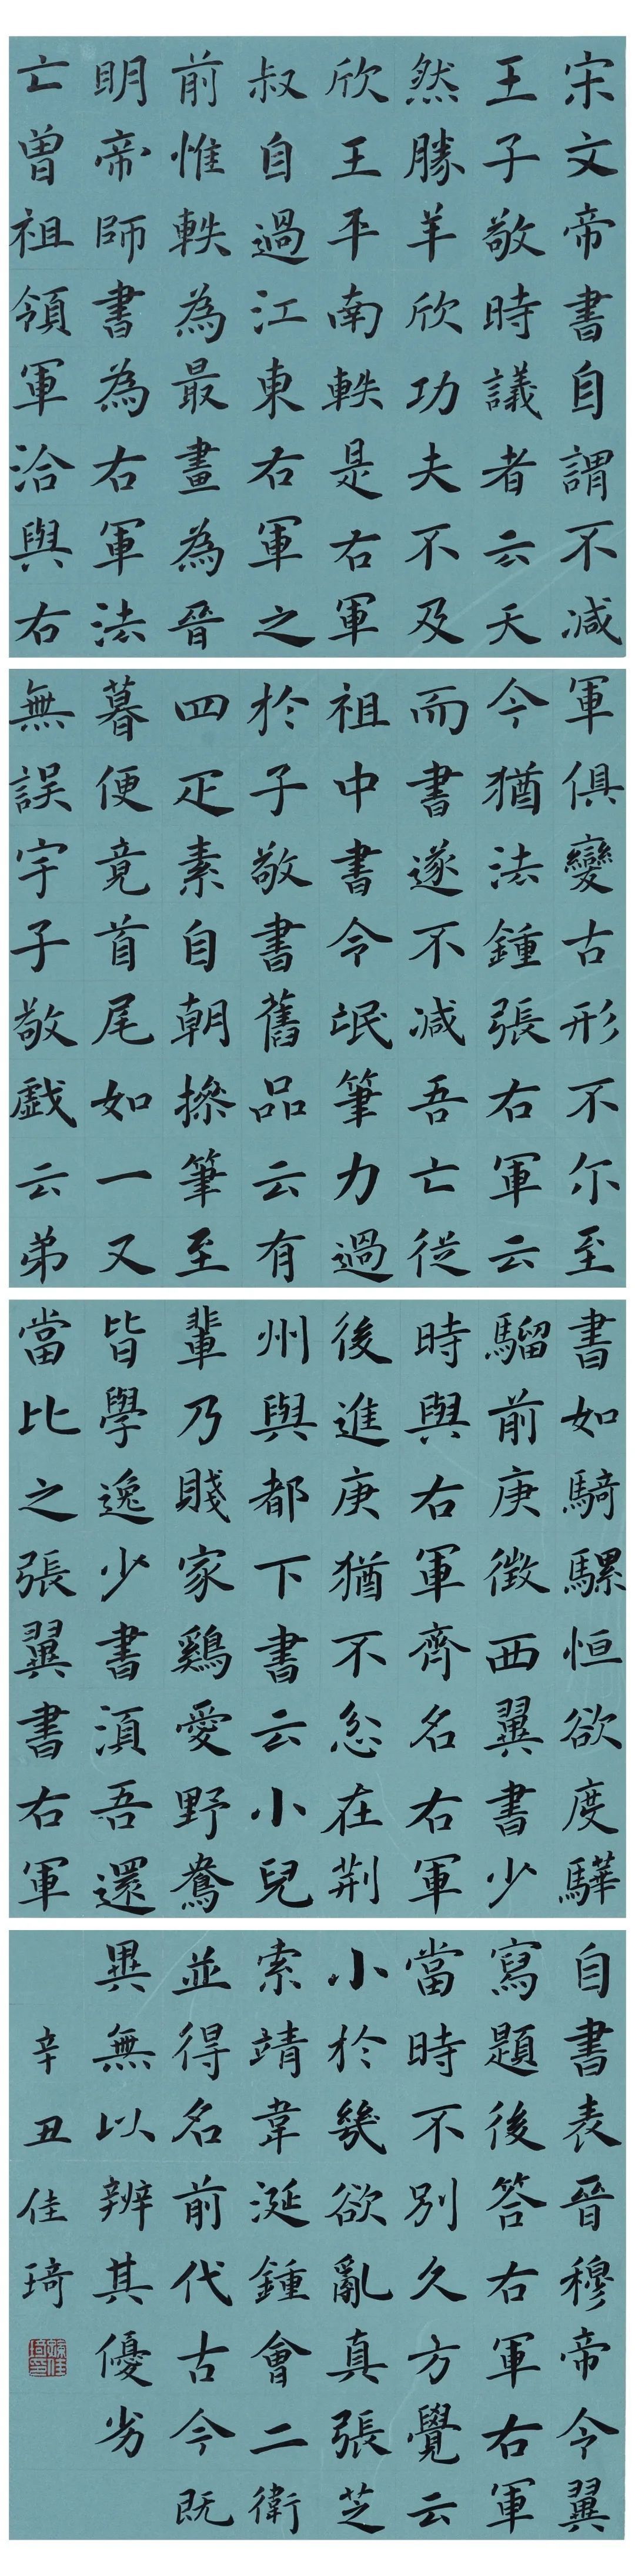 宋文帝書自謂不減
王子敬時議者云天
然勝羊欣功夫不及
欣王平南軼是右軍
叔自過江東右軍之
前惟軼為最畫為晉
明帝師書為右軍法
亡曾祖領軍洽與右
軍俱變古形不尔至
今猶法鍾張右軍云
而書遂不減吾亡從
祖中書令岷筆力過
於子敬書舊品云有
四疋素自朝操筆至
暮便竟首尾如一又
無誤字子敬戲云弟
書如騎騾恒欲度驊
騮前庚徵西翼書少
時與右軍齊名右軍
後進庚猶不忿在荆
州與都下書云小兒
輩乃賤家雞愛野鶩
皆學逸少書須吾還
當比之張翼書右軍
自書表晉穆帝令翼
寫題後答右軍右軍
當時不別久方覺云
小於幾欲亂真張芝
索靖韋涎鍾會二衛
並得名前代古今既
異無以辨其優劣
辛丑佳琦